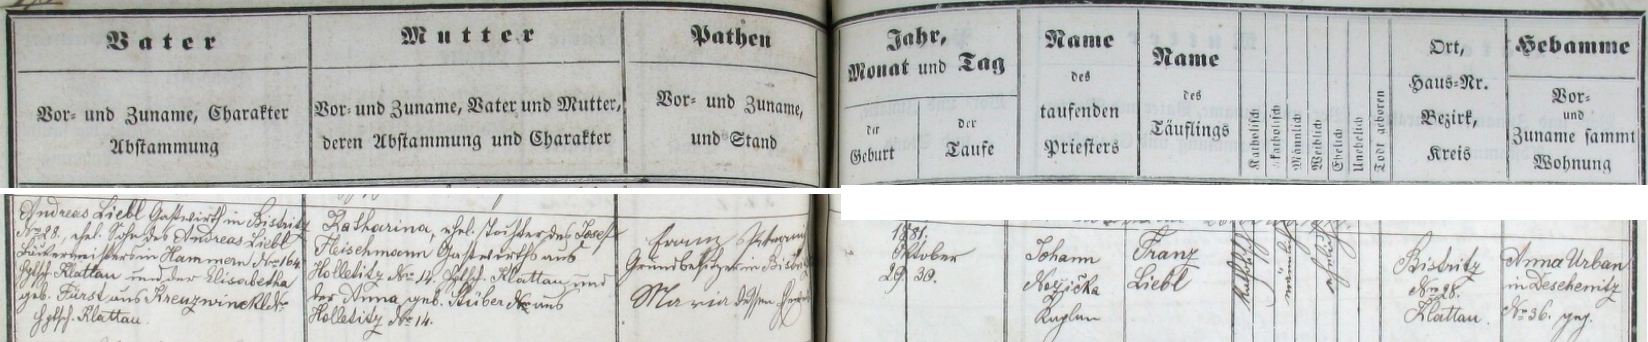 Vater
Mutter
Pathen
Vor- und Zuname, Charakter
Abstammung
Vor- und Zuname, Vater und Mutter,
deren Abstammung und Charakter
Vor- und Zuname,
und Stand
Jahr,
Monat und Tag
der
Geburt
der
Taufe
Name
des
taufenden
Priesters
Name
des
Täuflings
Katholisch
katholisch
Männlich
Weiblich
Ehelich
Unehelich
Todt geboren
Ort,
Haus-Nr.
Bezirk,
Kreis
Hebamme
Vor-
und
Zuname sammt
Wohnung
Andreas Liebl Gastwirth in Bistritz
Nr. 28., ehel. Sohn des Andreas Liebl
Bäckermeisters in Hammern Nr. 164
Klattau und der Elisabetha
geb. Fürst aus Kreuzwinkel
Klattau.
Katharina, ehel. Tochter des Josef
Fleischmann Gastwirths aus
Holletitz Nr. 14. Klattau und
der Anna, geb. Stuber aus
Holletitz Nr. 14.
Franz
Grundbesitzer in
Maria dessen
1881.
Oktober
29. 30.
Johann
Kaplan
Franz
Liebl
Katholisch
männlich
ehelich
Bistritz
Nr. 28.
Klattau.
Anna Urban
in Deschenitz
No 36. gep.